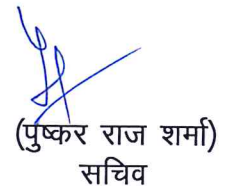 (पुष्कर राज शर्मा)
सचिव